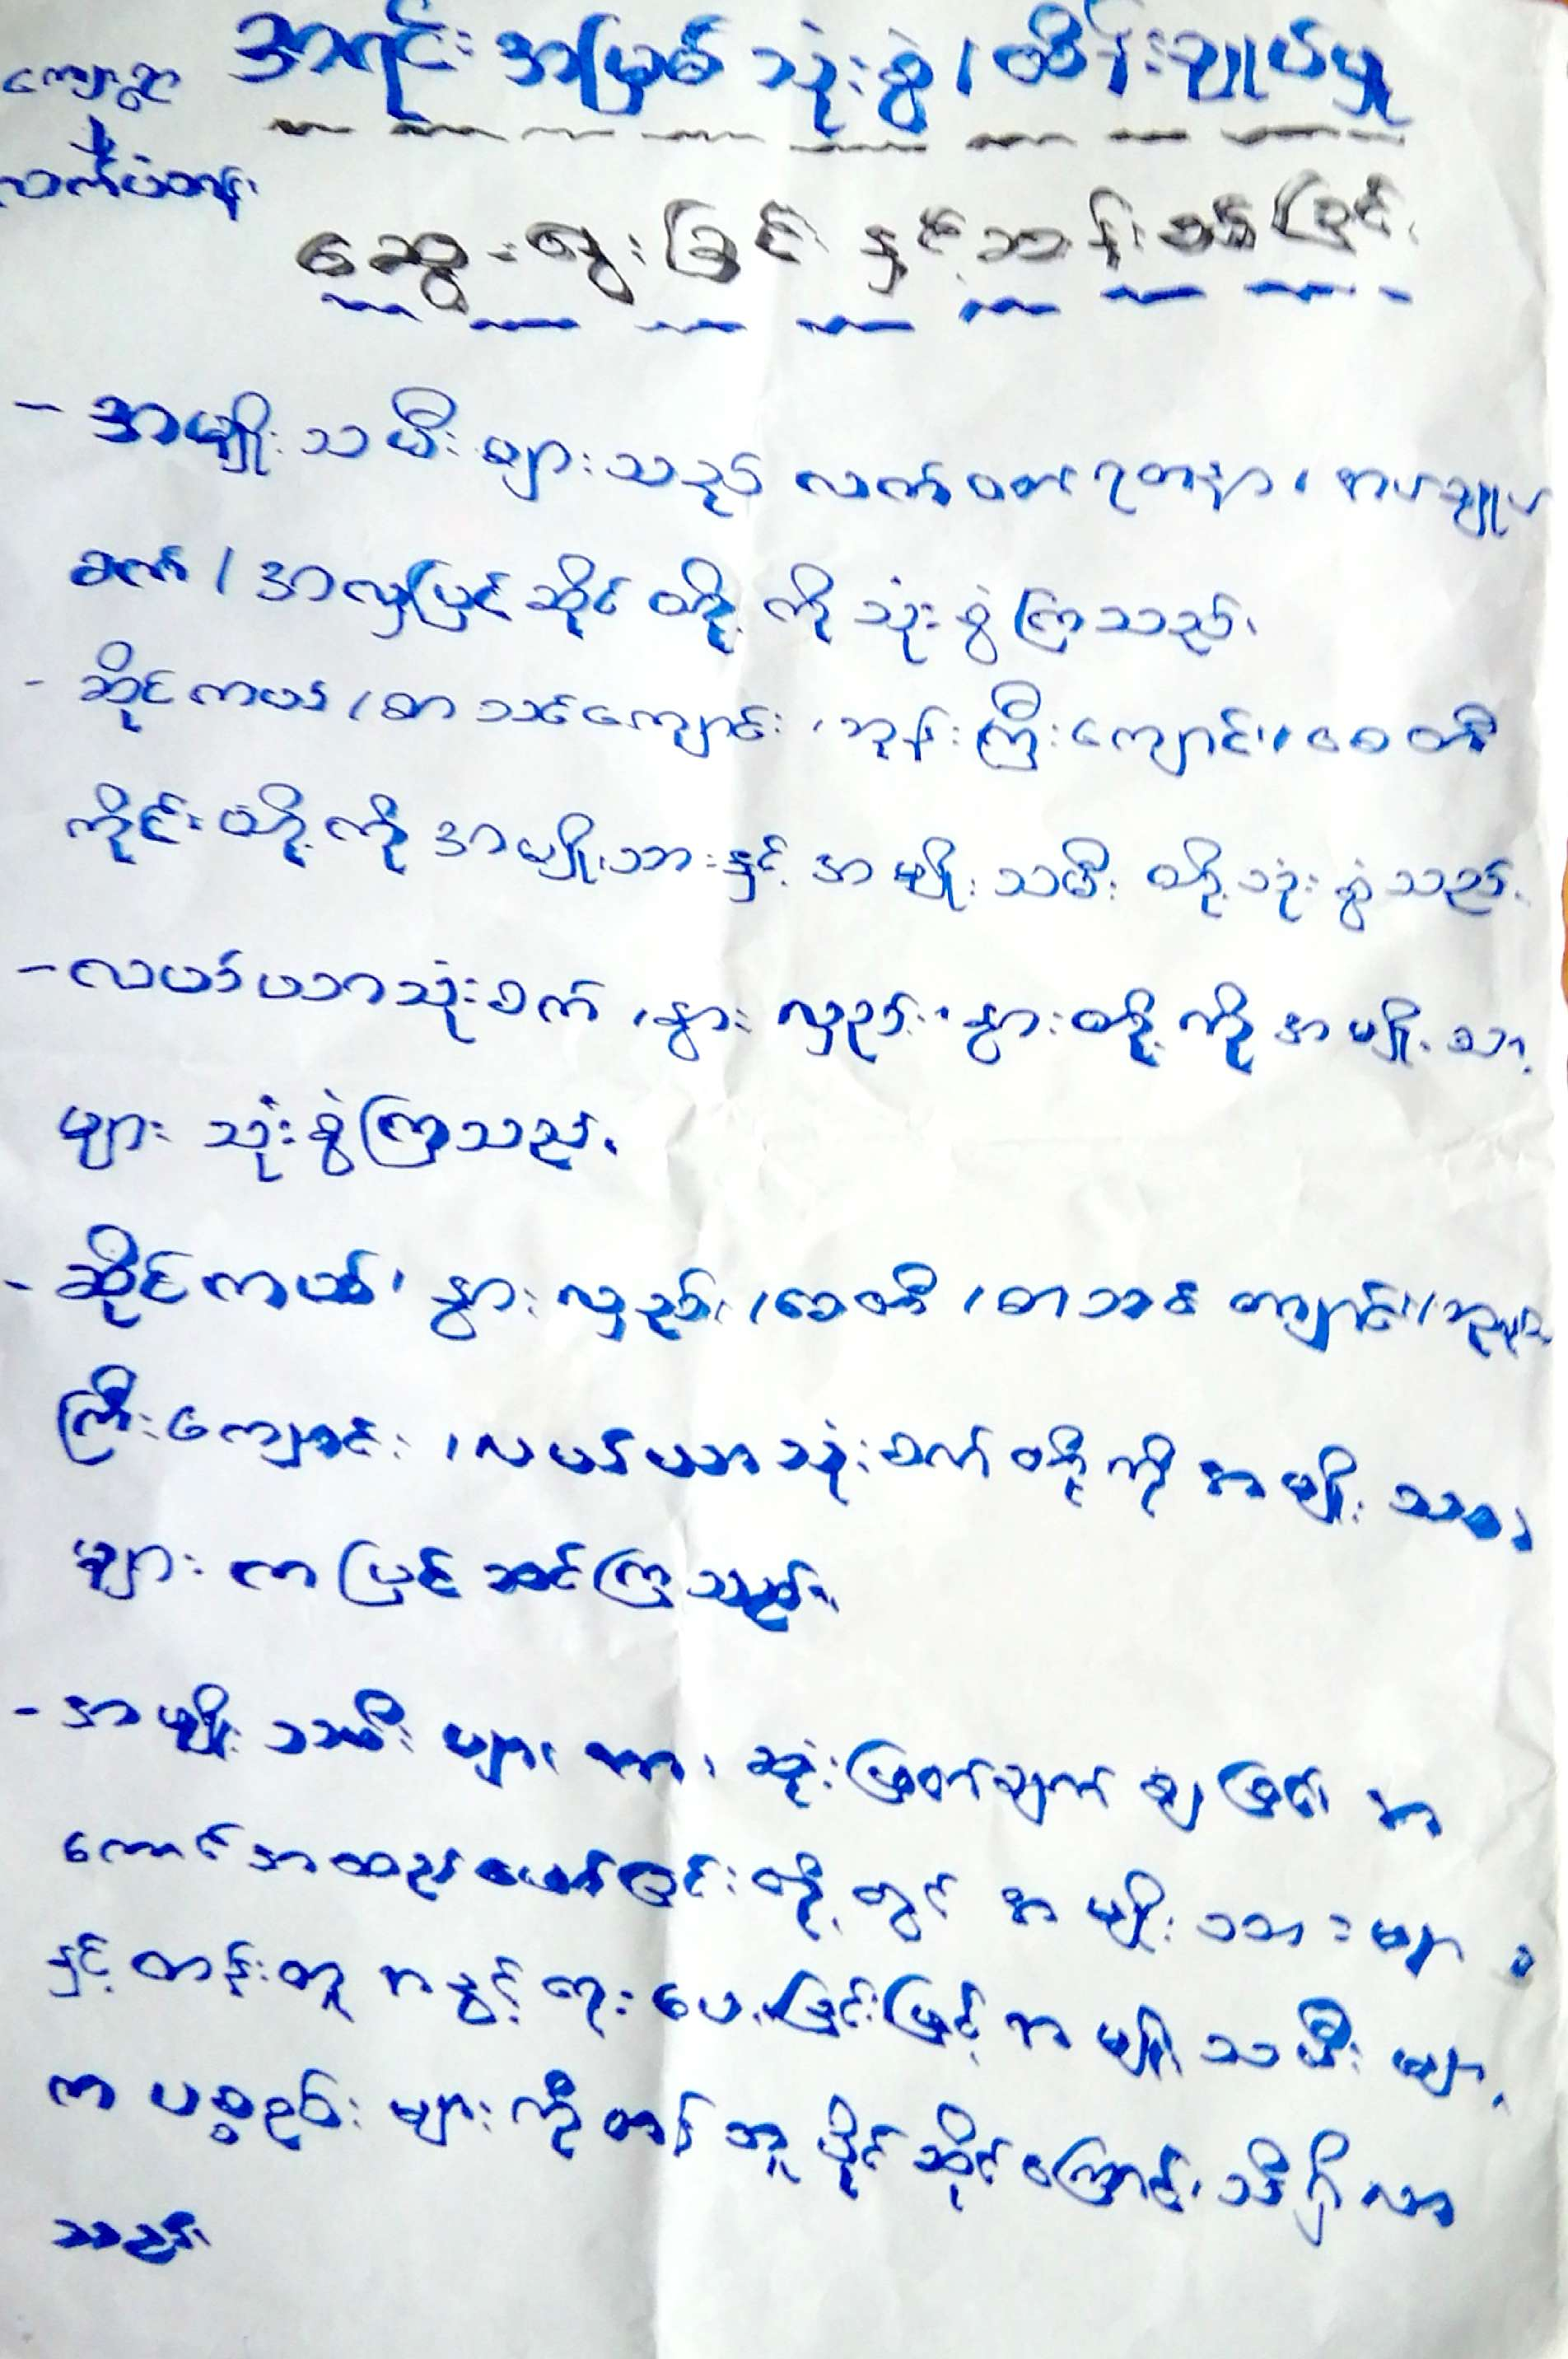 အရင်းအမြစ်သုံးစွဲ၊ထိန်းချုပ်မှု
ကျေးရွာ
လက်ပံတန်း
ဆွေးနွေးခြင်းနှင့်ဆန်းစစ်ခြင်း
- အမျိုးသမီးများသည် လက်ဝတ်ရတနာ၊ အပ်ချုပ်
စက်၊ အလှပြင်ဆိုင်တို့ကိုသုံးစွဲကြသည်။
- ဆိုင်ကယ်၊ စာသင်ကျောင်း၊ ဘုန်းကြီးကျောင်း၊ စေတီ
ကိုင်းတို့ကို အမျိုးသားနှင့် အမျိုးသမီး တို့သုံးစွဲသည်။
- လယ်ယာသုံးစက်၊ နွားလှည်း၊ နွားတို့ကို အမျိုးသား
များ သုံးစွဲကြသည်။
- ဆိုင်ကယ်၊ နွားလှည်း၊ စေတီ၊ စာသင်ကျောင်း၊ ဘုန်း
ကြီးကျောင်း၊ လယ်ယာသုံးစက်တို့ကို အမျိုးသား
များကပြင်ဆင်ကြသည်။
- အမျိုးသမီးများအား ဆုံးဖြတ်ချက်ချခြင်း၊ အ
ကောင်အထည်ဖော်ခြင်းတို့တွင် အမျိုးသားများ
နှင့်တန်းတူအခွင့်ရေးပေးခြင်းဖြင့် အမျိုးသမီးများ
ကပစ္စည်းများကိုတန်းတူပိုင်ဆိုင်ကြောင်းသိရှိလာ
သည်။